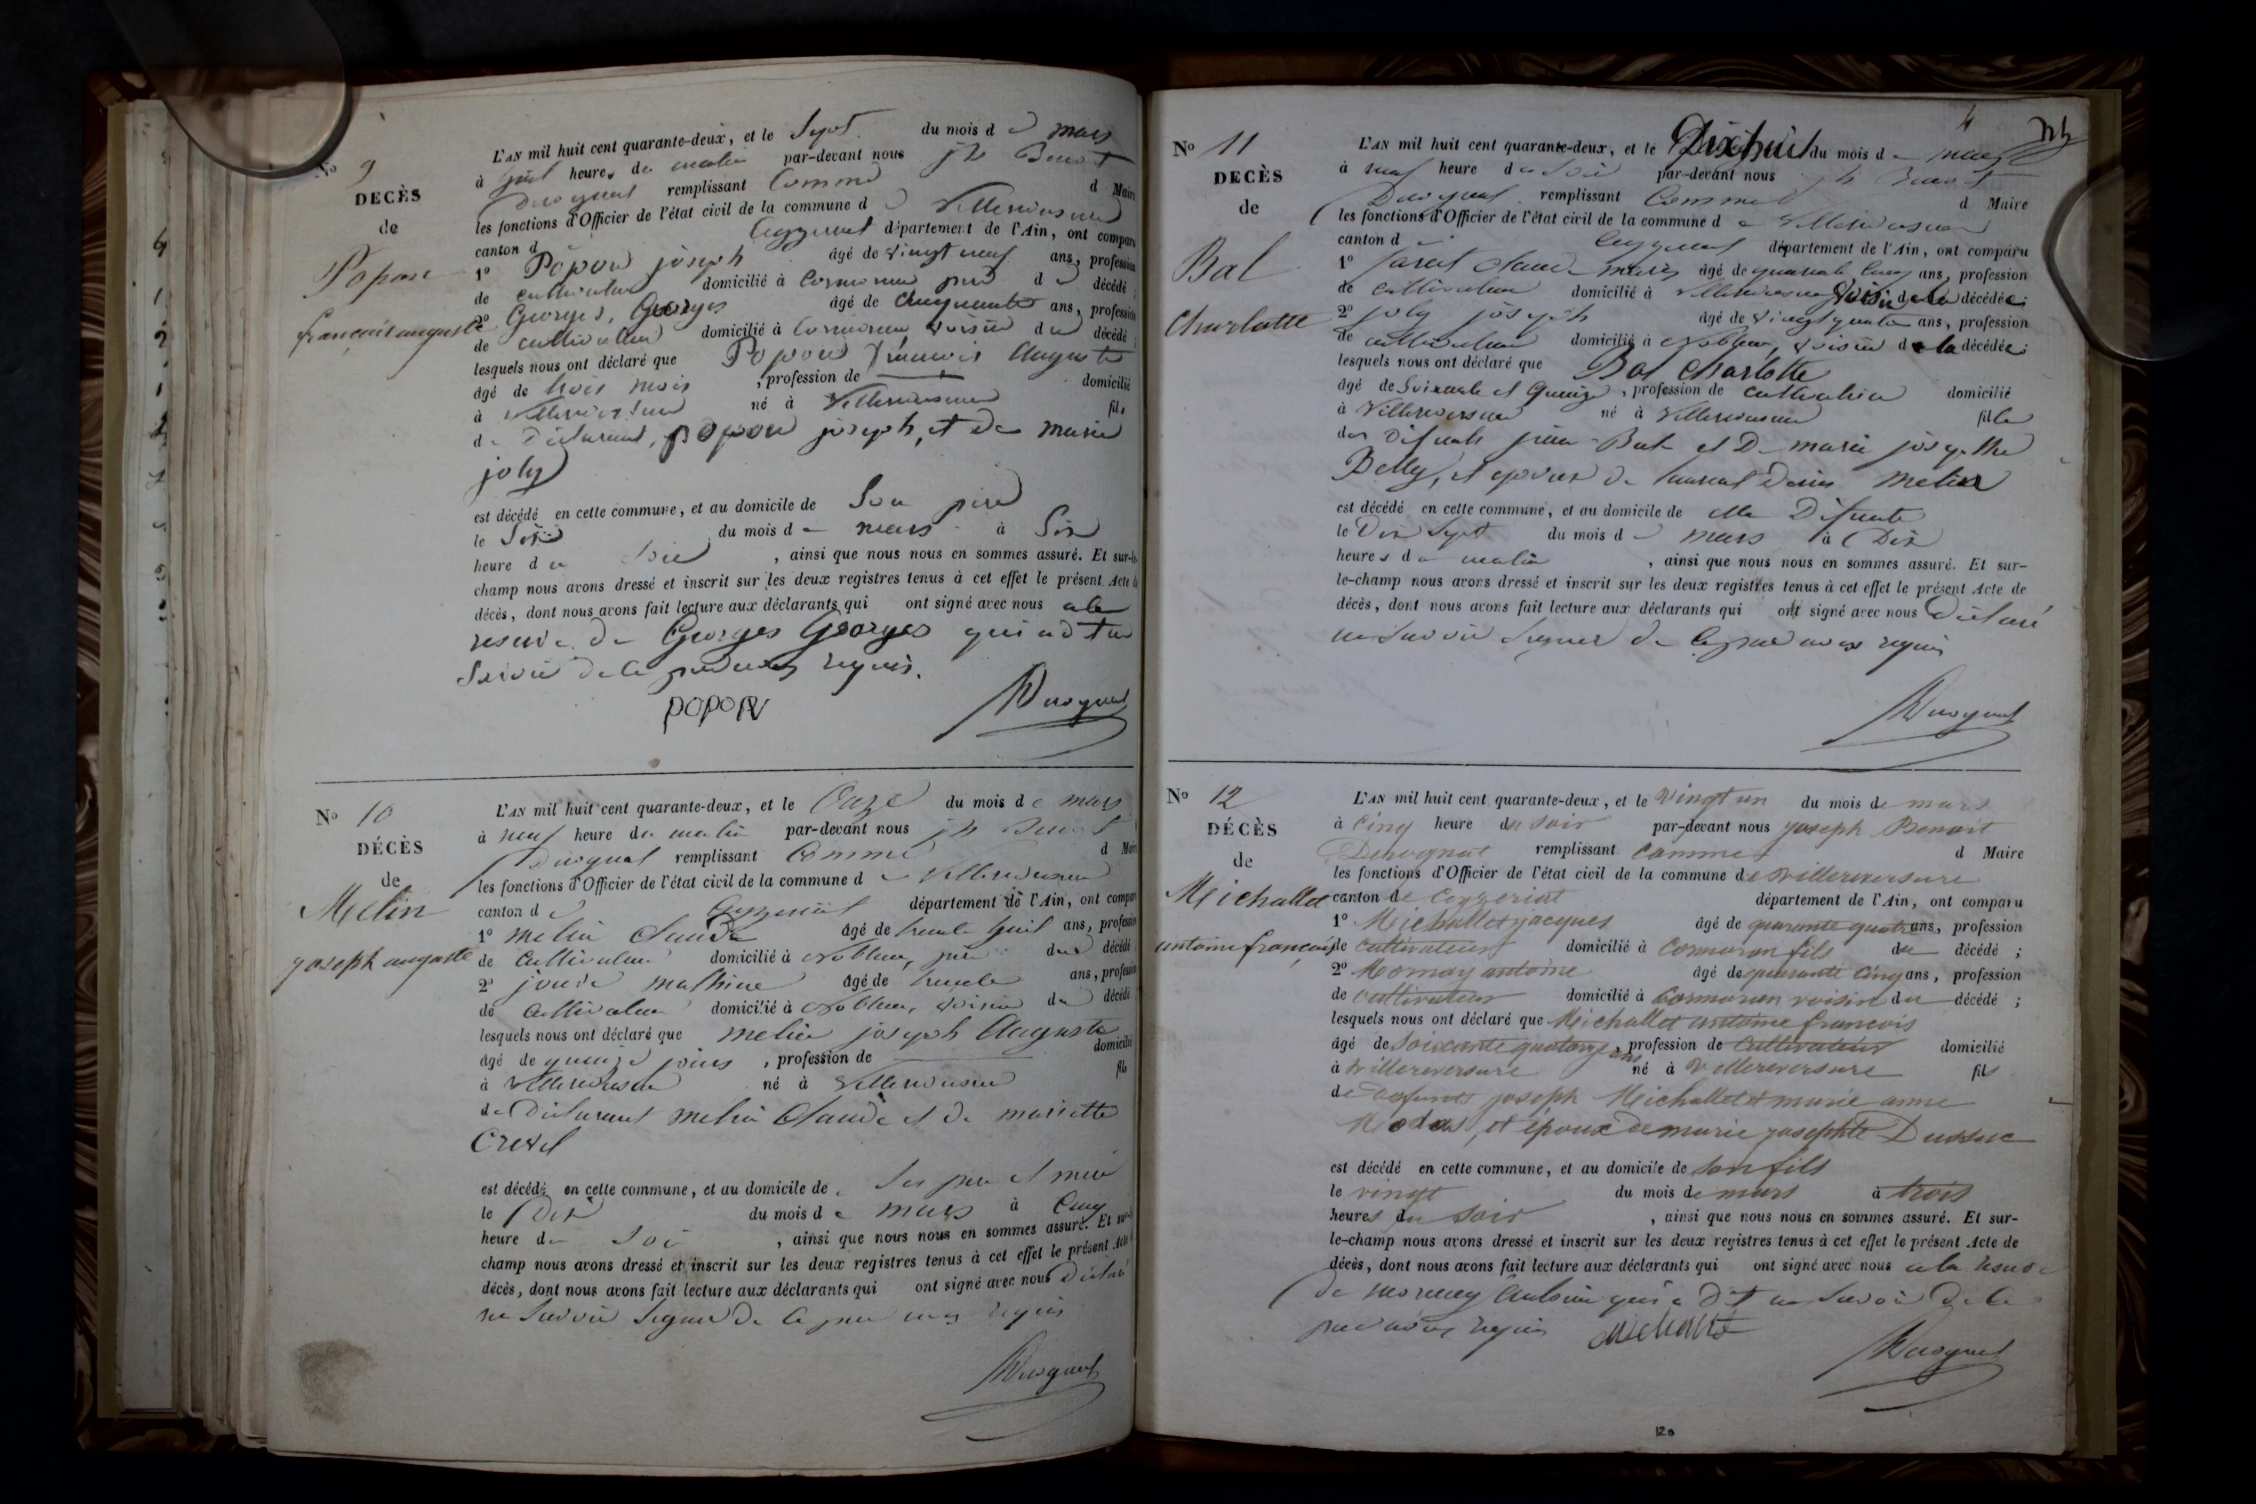 N° 9
DECÈS
de
Popon
françois auguste
L'AN mil huit cent quarante-deux, et le Sept du mois de mars
à huit heures du matin par-devant nous jh Benoit
remplissant comme d Maire
les fonctions d'Officier de l'état civil de la commune de Villereversure
canton de Ceyzeriat département de l'Ain, ont comparu
1° Popon joseph âgé de vingt neuf ans, profession
de cultivateur domicilié à Cormoran père du décédé
2° Georges, Georges âgé de cinquante ans, profession
de cultivateur domicilié à Cormoran voisin du décédé ;
lesquels nous ont déclaré que Popon françois Auguste
âgé de trois mois , profession de domicilié
à Villereversure né à Villereversure fils
du déclarant, popon joseph, et de marie
joly
est décédé en cette commune, et au domicile de Son père
le Six du mois de mars à Six
heure du Soir , ainsi que nous nous en sommes assuré. Et sur-le-
champ nous avons dressé et inscrit sur les deux registres tenus à cet effet le présent Acte de
décès, dont nous avons fait lecture aux déclarants qui ont signé avec nous a la
reserve de Georges Georges qui a dit ne
Savoir de ce requis.
POPON
N° 10
DÉCÈS
de
Melin
joseph auguste
L'AN mil huit cent quarante-deux, et le Onze du mois de mars
à neuf heure du matin par-devant nous jh Benoit
remplissant comme d Maire
les fonctions d'Officier de l'état civil de la commune de Villereversure
canton de Ceyzeriat département de l'Ain, ont comparu
1° melin Claude âgé de trente huit ans, profession
de Cultivateur domicilié à Noblens, père du décédé
2° mathieu âgé de trente ans, profession
de Cultivateur domicilié à Noblens, voisin du décédé
lesquels nous ont déclaré que melin joseph Auguste
âgé de quinze jours , profession de domicilié
à Villereversure né à Villereversure fils
du déclarant melin Claude et de mariette
est décédé en cette commune, et au domicile de Ses père et mère
le Dix du mois de mars à Cinq
heure du Soir , ainsi que nous nous en sommes assuré. Et sur-le-
champ nous avons dressé et inscrit sur les deux registres tenus à cet effet le présent Acte
décès, dont nous avons fait lecture aux déclarants qui ont signé avec nous déclaré
ne Savoir Signer de ce requis
4
N° 11
DÉCÈS
de
Bal
Charlotte
L'AN mil huit cent quarante-deux, et le Dixhuit du mois de mars
à neuf heure du Soir par-devant nous jh Benoit
remplissant comme d Maire
les fonctions d'Officier de l'état civil de la commune de Villereversure
canton de Ceyzeriat département de l'Ain, ont comparu
1° Claude marie âgé de quarante cinq ans, profession
de Cultivateur domicilié à Villereversure voisin de la décédée ;
2° joly joseph âgé de vingt quatre ans, profession
de cultivateur domicilié à Noblens, voisin de la décédée ;
lesquels nous ont déclaré que Bal Charlotte
âgé de Soixante et Quinze , profession de cultivatrice domicilié
à Villereversure né à Villereversure fille
des défunts Bal et De marie josephte
Belly, et épouse de melin
est décédé en cette commune, et au domicile de elle Défunte
le Dix Sept du mois de mars à Dix
heures du matin , ainsi que nous nous en sommes assuré. Et sur-
le-champ nous avons dressé et inscrit sur les deux registres tenus à cet effet le présent Acte de
décès, dont nous avons fait lecture aux déclarants qui ont signé avec nous Déclaré
ne Savoir Signer de ce requis
N° 12
DÉCÈS
de
Michallet
antoine françois
L'AN mil huit cent quarante-deux, et le vingt un du mois de mars
à cinq heure du soir par-devant nous joseph Benoit
remplissant comme d Maire
les fonctions d'Officier de l'état civil de la commune de villereversure
canton de Ceyzeriat département de l'Ain, ont comparu
1° Michallet jacques âgé de quarante quatre ans, profession
de cultivateur domicilié à Cormoran fils du décédé ;
2° Mornay antoine âgé de quarante cinq ans, profession
de cultivateur domicilié à Cormoran voisin du décédé ;
lesquels nous ont déclaré que Michallet antoine francois
âgé de Soixante quatorze ans, profession de cultivateur domicilié
à villereversure né à villereversure fils
de defunts joseph Michallet et marie anne
et époux de marie josephte
est décédé en cette commune, et au domicile de son fils
le vingt du mois de mars à trois
heures du soir , ainsi que nous nous en sommes assuré. Et sur-
le-champ nous avons dressé et inscrit sur les deux registres tenus à cet effet le présent Acte de
décès, dont nous avons fait lecture aux déclarants qui ont signé avec nous a la reserve
de mornay Antoine qui a Dit ne Savoir De ce
requis michallet
120